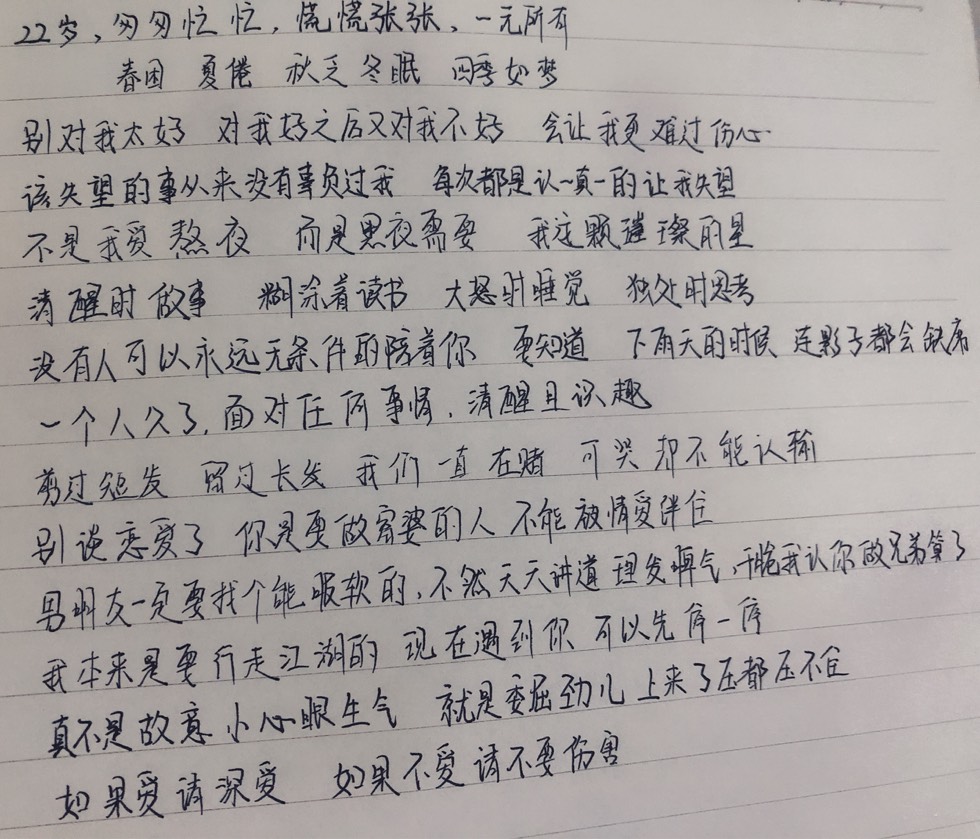 22岁，匆匆忙忙，慌慌张张，一无所有
春困 夏倦 秋乏 冬眠 四季如梦
别对我太好 对我好之后又对我不好 会让我更难过伤心
该失望的事从来没有辜负过我 每次都是认~真~的让我失望
不是我爱熬夜 而是黑夜需要 我这颗璀璨的星
清醒时做事 糊涂着读书 大怒时睡觉 独处时思考
没有人可以永远无条件的陪着你 要知道 下雨天的时候 连影子都会缺席
一个人久了，面对任何事情，清醒且识趣
剪过短发 留过长发 我们一直在赌 可哭却不能认输
别谈恋爱了 你是要做富婆的人 不能被情爱绊住
男朋友一定要找个能服软的，不然天天讲道理发脾气，干脆我认你做兄弟算了
我本来是要行走江湖的 现在遇到你 可以先停一停
真不是故意小心眼生气 就是委屈劲儿上来了压都压不住
如果爱请深爱 如果不爱请不要伤害